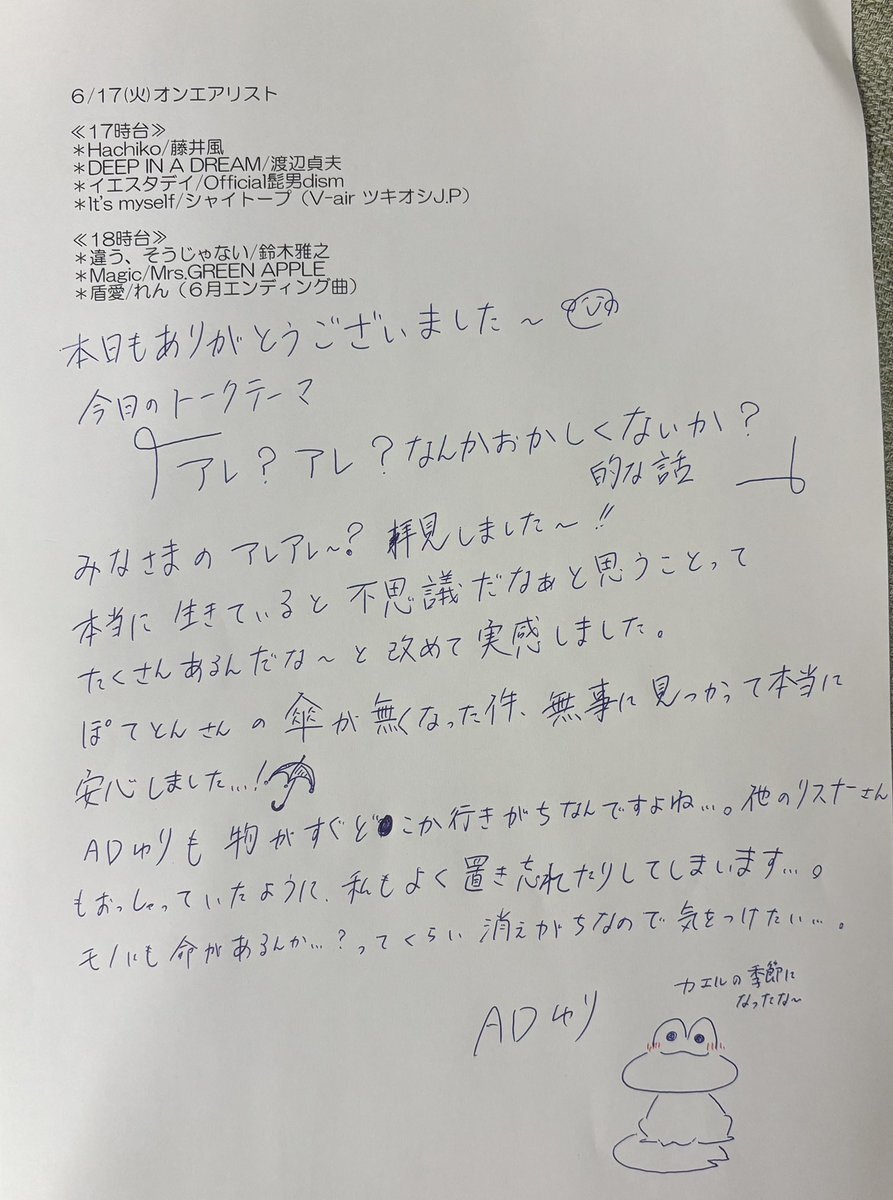 6/17(火)オンエアリスト
≪17時台≫
*Hachiko/藤井風
*DEEP IN A DREAM/渡辺貞夫
*イエスタデイ/Official髭男dism
*It's myself/シャイトープ（V-air ツキオシJ.P）
≪18時台≫
*違う、そうじゃない/鈴木雅之
*Magic/Mrs.GREEN APPLE
*盾愛/れん（6月エンディング曲）
本日もありがとうございました～
今日のトークテーマ
「アレ？アレ？なんかおかしくないか？
的な話」
みなさまのアレアレ～？拝見しました～!!
本当に生きていると不思議だなぁと思うことって
たくさんあるんだな～と改めて実感しました。
ぽてとんさんの傘が無くなった件、無事に見つかって本当に
安心しました…!
ADゅりも物がすぐどこか行きがちなんですよね…。他のリスナーさん
もおっしゃっていたように、私もよく置き忘れたりしてしまいます…。
モノにも命があるんか…？ってくらい消えがちなので気をつけたい…。
ADゅり
カエルの季節に
なったな～